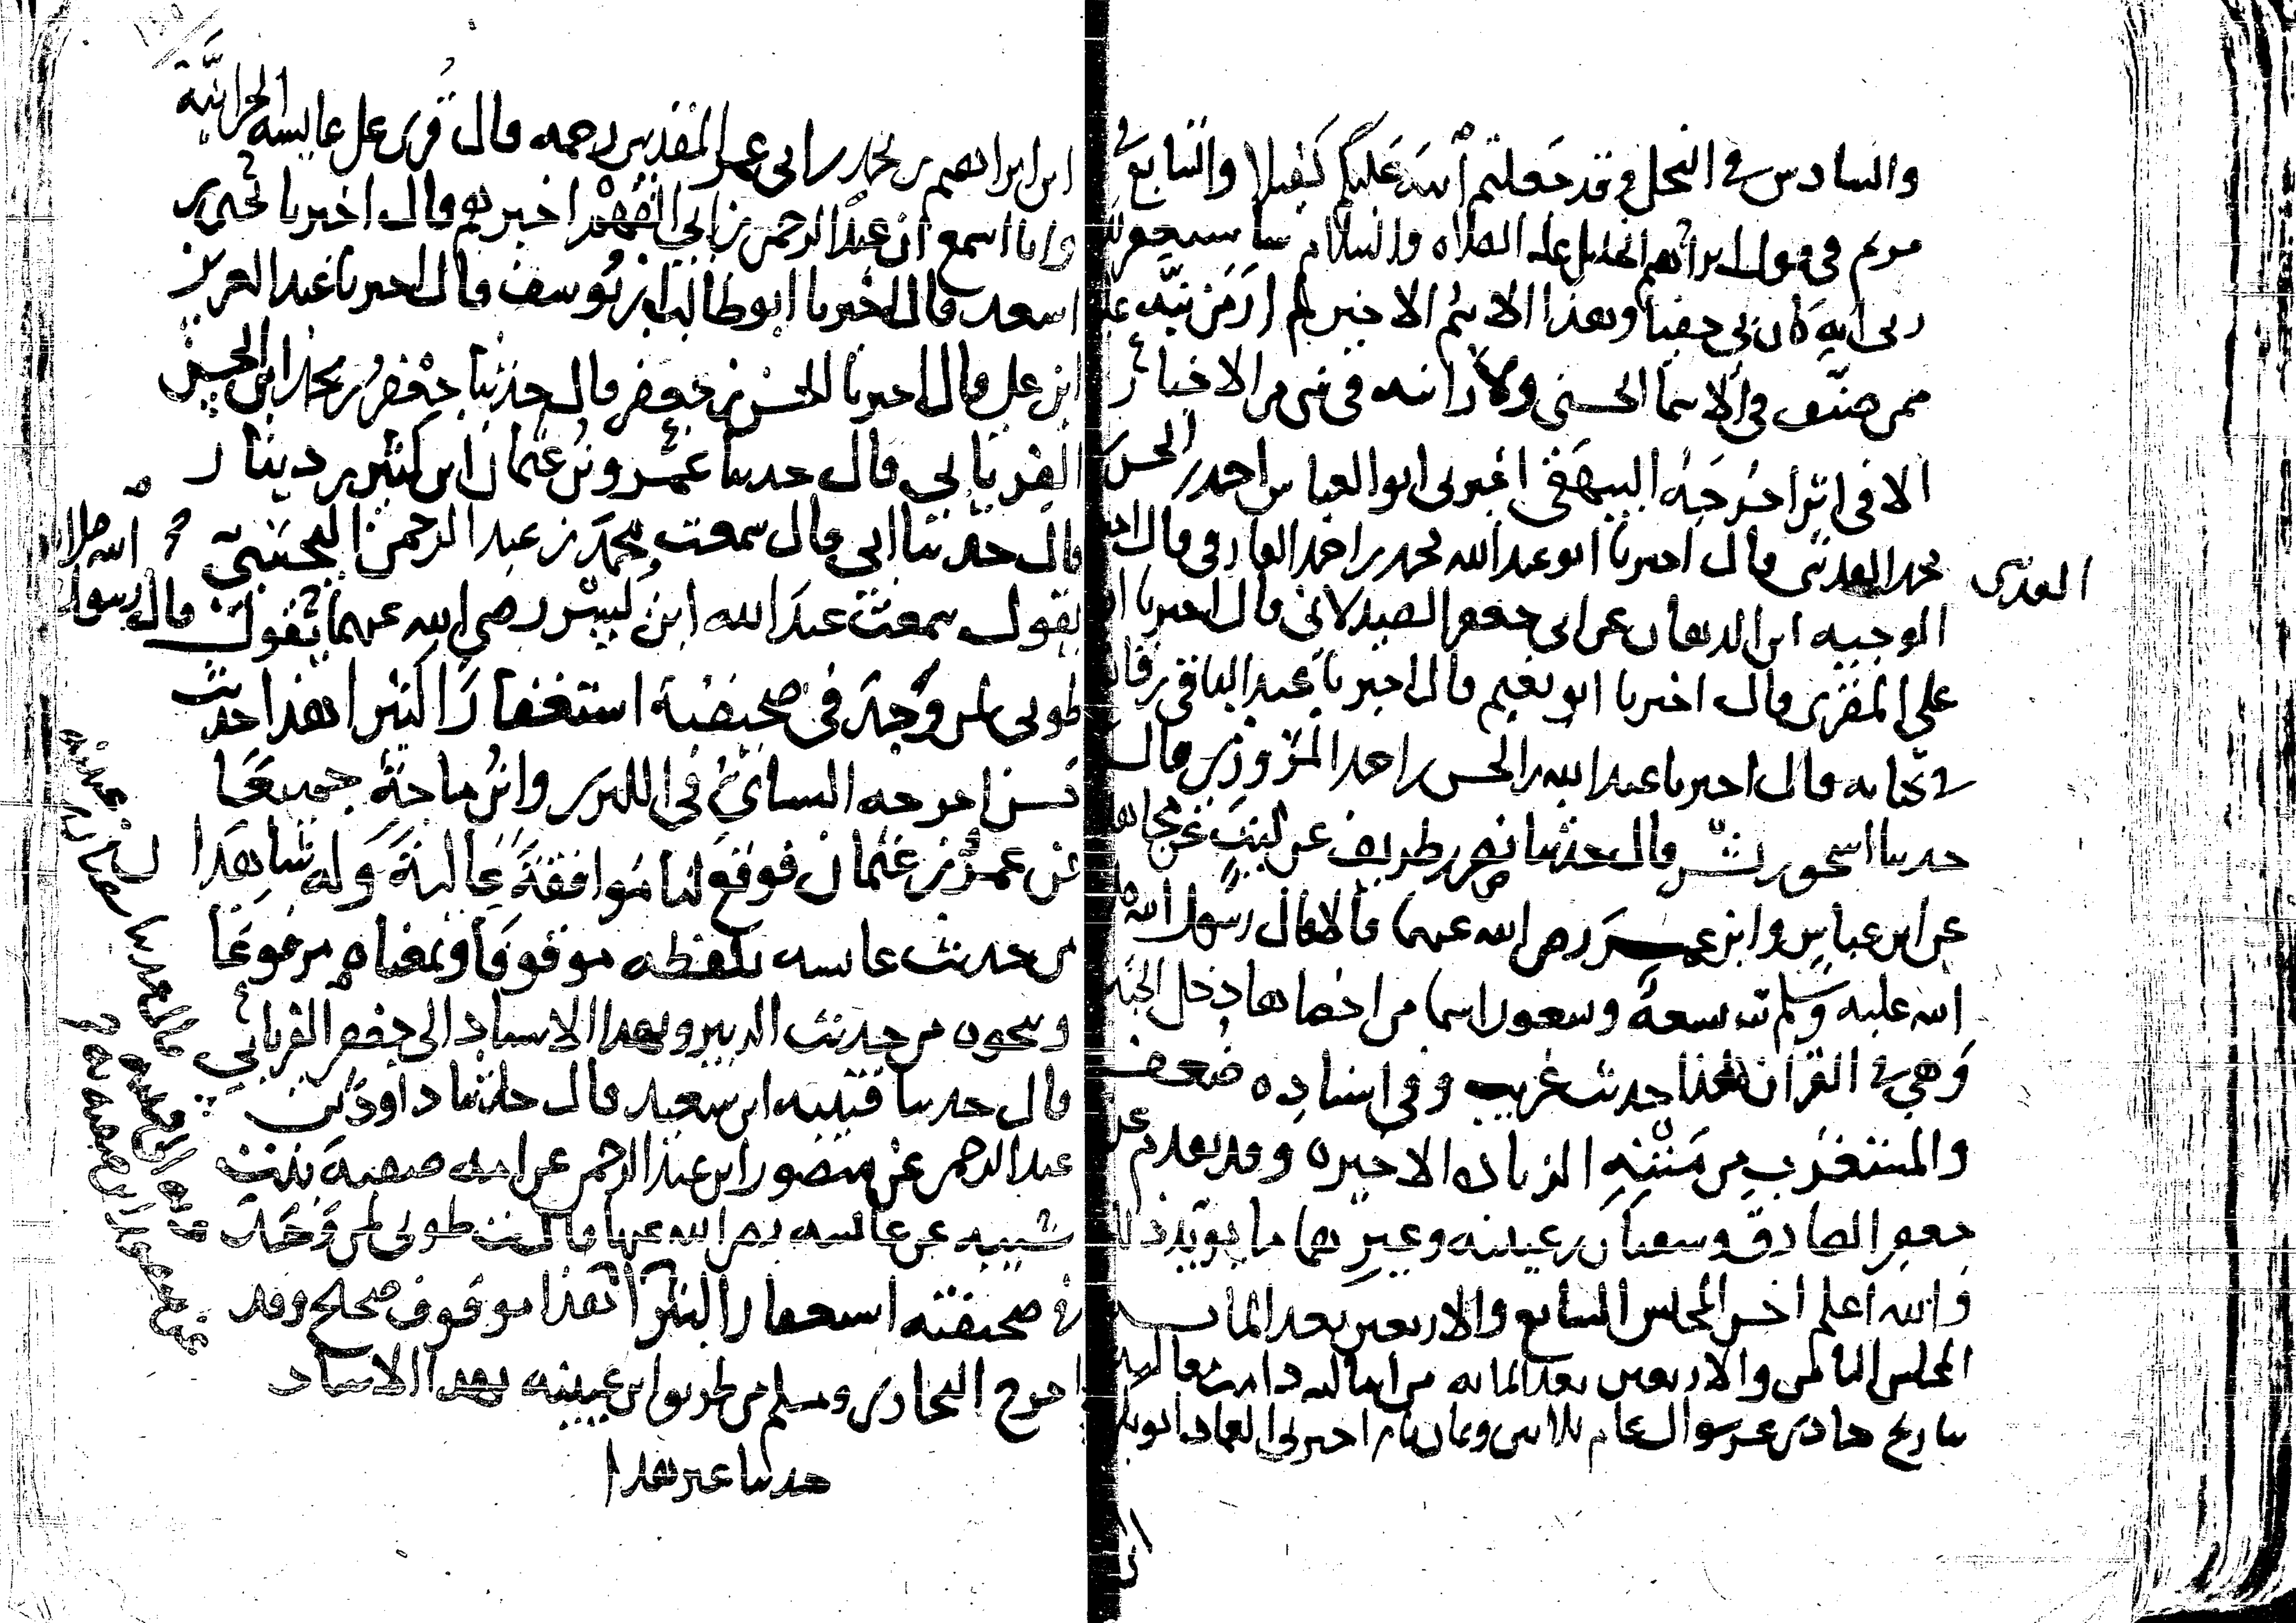 والسادس في النحل وقد جعلتم الله عليكم كفيلا والسابع في
مريم في قول ابراهيم الخليل عليه الصلاة والسلام ساستغفر لك
ربي انه كان بي حفيا وهذا الاسم الاخير لم ار من نبه عليه
ممن صنف في الاسما الحسنى ولا رايته في شي من الاخبار
الا في اثر اخرجه البيهقي اخبرني ابو العباس احمد بن الحسن
محمد العدني قال اخبرنا ابو عبد الله محمد بن احمد الفارقي قال
العدني
الوجيه ابن الدهان عن ابي جعفر الصيدلاني قال اخبرنا
علي المقري قال اخبرنا ابو نعيم قال اخبرنا عبد الباقي بن قانع
في كتابه قال اخبرنا عبد الله بن الحسن بن احمد المروزي قال
حدثنا اسحق بن بشر قال حدثنا نصر بن طريف عن ليث عن مجاهد
عن ابن عباس وابن عمر رضي الله عنهما قالا قال رسول الله
الله عليه وسلم لله تسعة وتسعون اسما من احصاها دخل الجنة
وهي في القران هذا حديث غريب وفي اسناده ضعف
والمستغرب من متنه الزيادة الاخيرة وقد تقدم عن
جعفر الصادق وسفيان بن عيينه وغيرهما ما يويد ذلك
والله اعلم اخر المجلس السابع والاربعين بعد الماية
المجلس الثامن والاربعين بعد المايه من اماليه دامت معاليه
بتاريخ حادي عشر شوال عام ثلاثين وثمان ماية اخبرني العماد ابو بكر
ابن ابراهيم بن محمد بن ابي عمر المقدسي رحمه قال قرئ على عايشه الحرانية
وانا اسمع ان عبد الرحمن بن ابي الفهم اخبرهم قال اخبرنا يحيى بن
اسعد قال اخبرنا ابو طالب ابن يوسف قال اخبرنا عبد العزيز
ابن علي قال اخبرنا الحسن بن جعفر قال حدثنا جعفر بن محمد ابن الحسن
الفريابي قال حدثنا عمرو بن عثمان ابن كثير بن دينار
قال حدثنا ابي قال سمعت محمد بن عبد الرحمن اليحصبي
يقول سمعت عبد الله ابن بسر رضي الله عنهما يقول قال رسول
الله صلى الله
طوبى لمن وجد في صحيفته استغفارا كثيرا هذا حديث
حسن اخرجه النسائي في الكبرى وابن ماجة جميعا
عن عمرو بن عثمان فوقع لنا موافقة عالية وله شاهد
من حديث عايشه بلفظه موقوفا وبمعناه مرفوعا
ونحوه من حديث الزبير وبهذا الاسناد الى جعفر الفريابي
قال حدثنا قتيبه ابن سعيد قال حدثنا داود بن
عبد الرحمن عن منصور ابن عبد الرحمن عن امه صفية بنت
شيبه عن عايشه رضي الله عنها قالت طوبى لمن وجد
في صحيفته استغفارا كثيرا هذا موقوف صحيح وقد
اخرج البخاري ومسلم من طريق ابن عيينه بهذا الاسناد
حديثا غير هذا